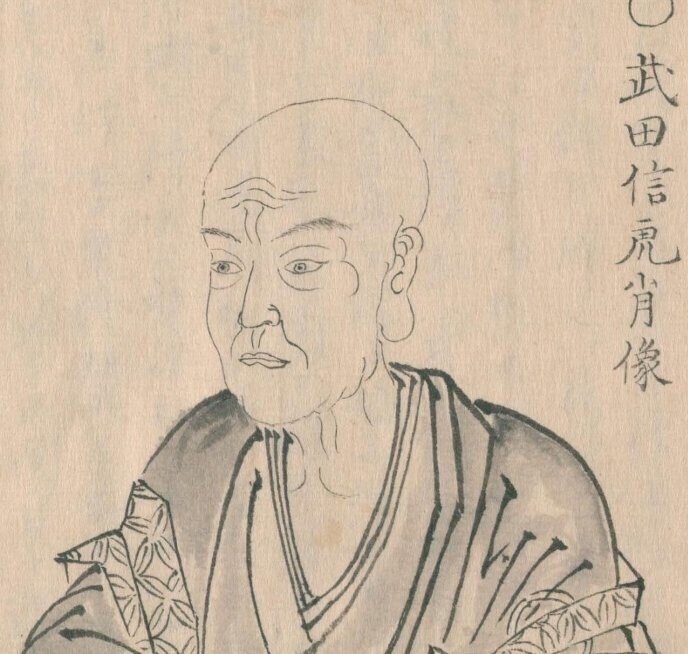 ○武田信虎肖像